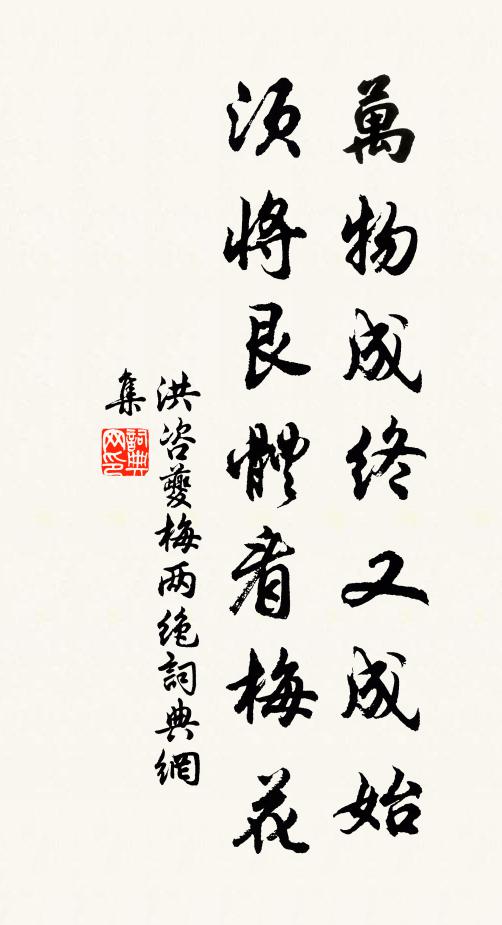 萬物成終又成始
須將艮體看梅花
洪咨夔梅兩絶詞典網
集
詞典
网印